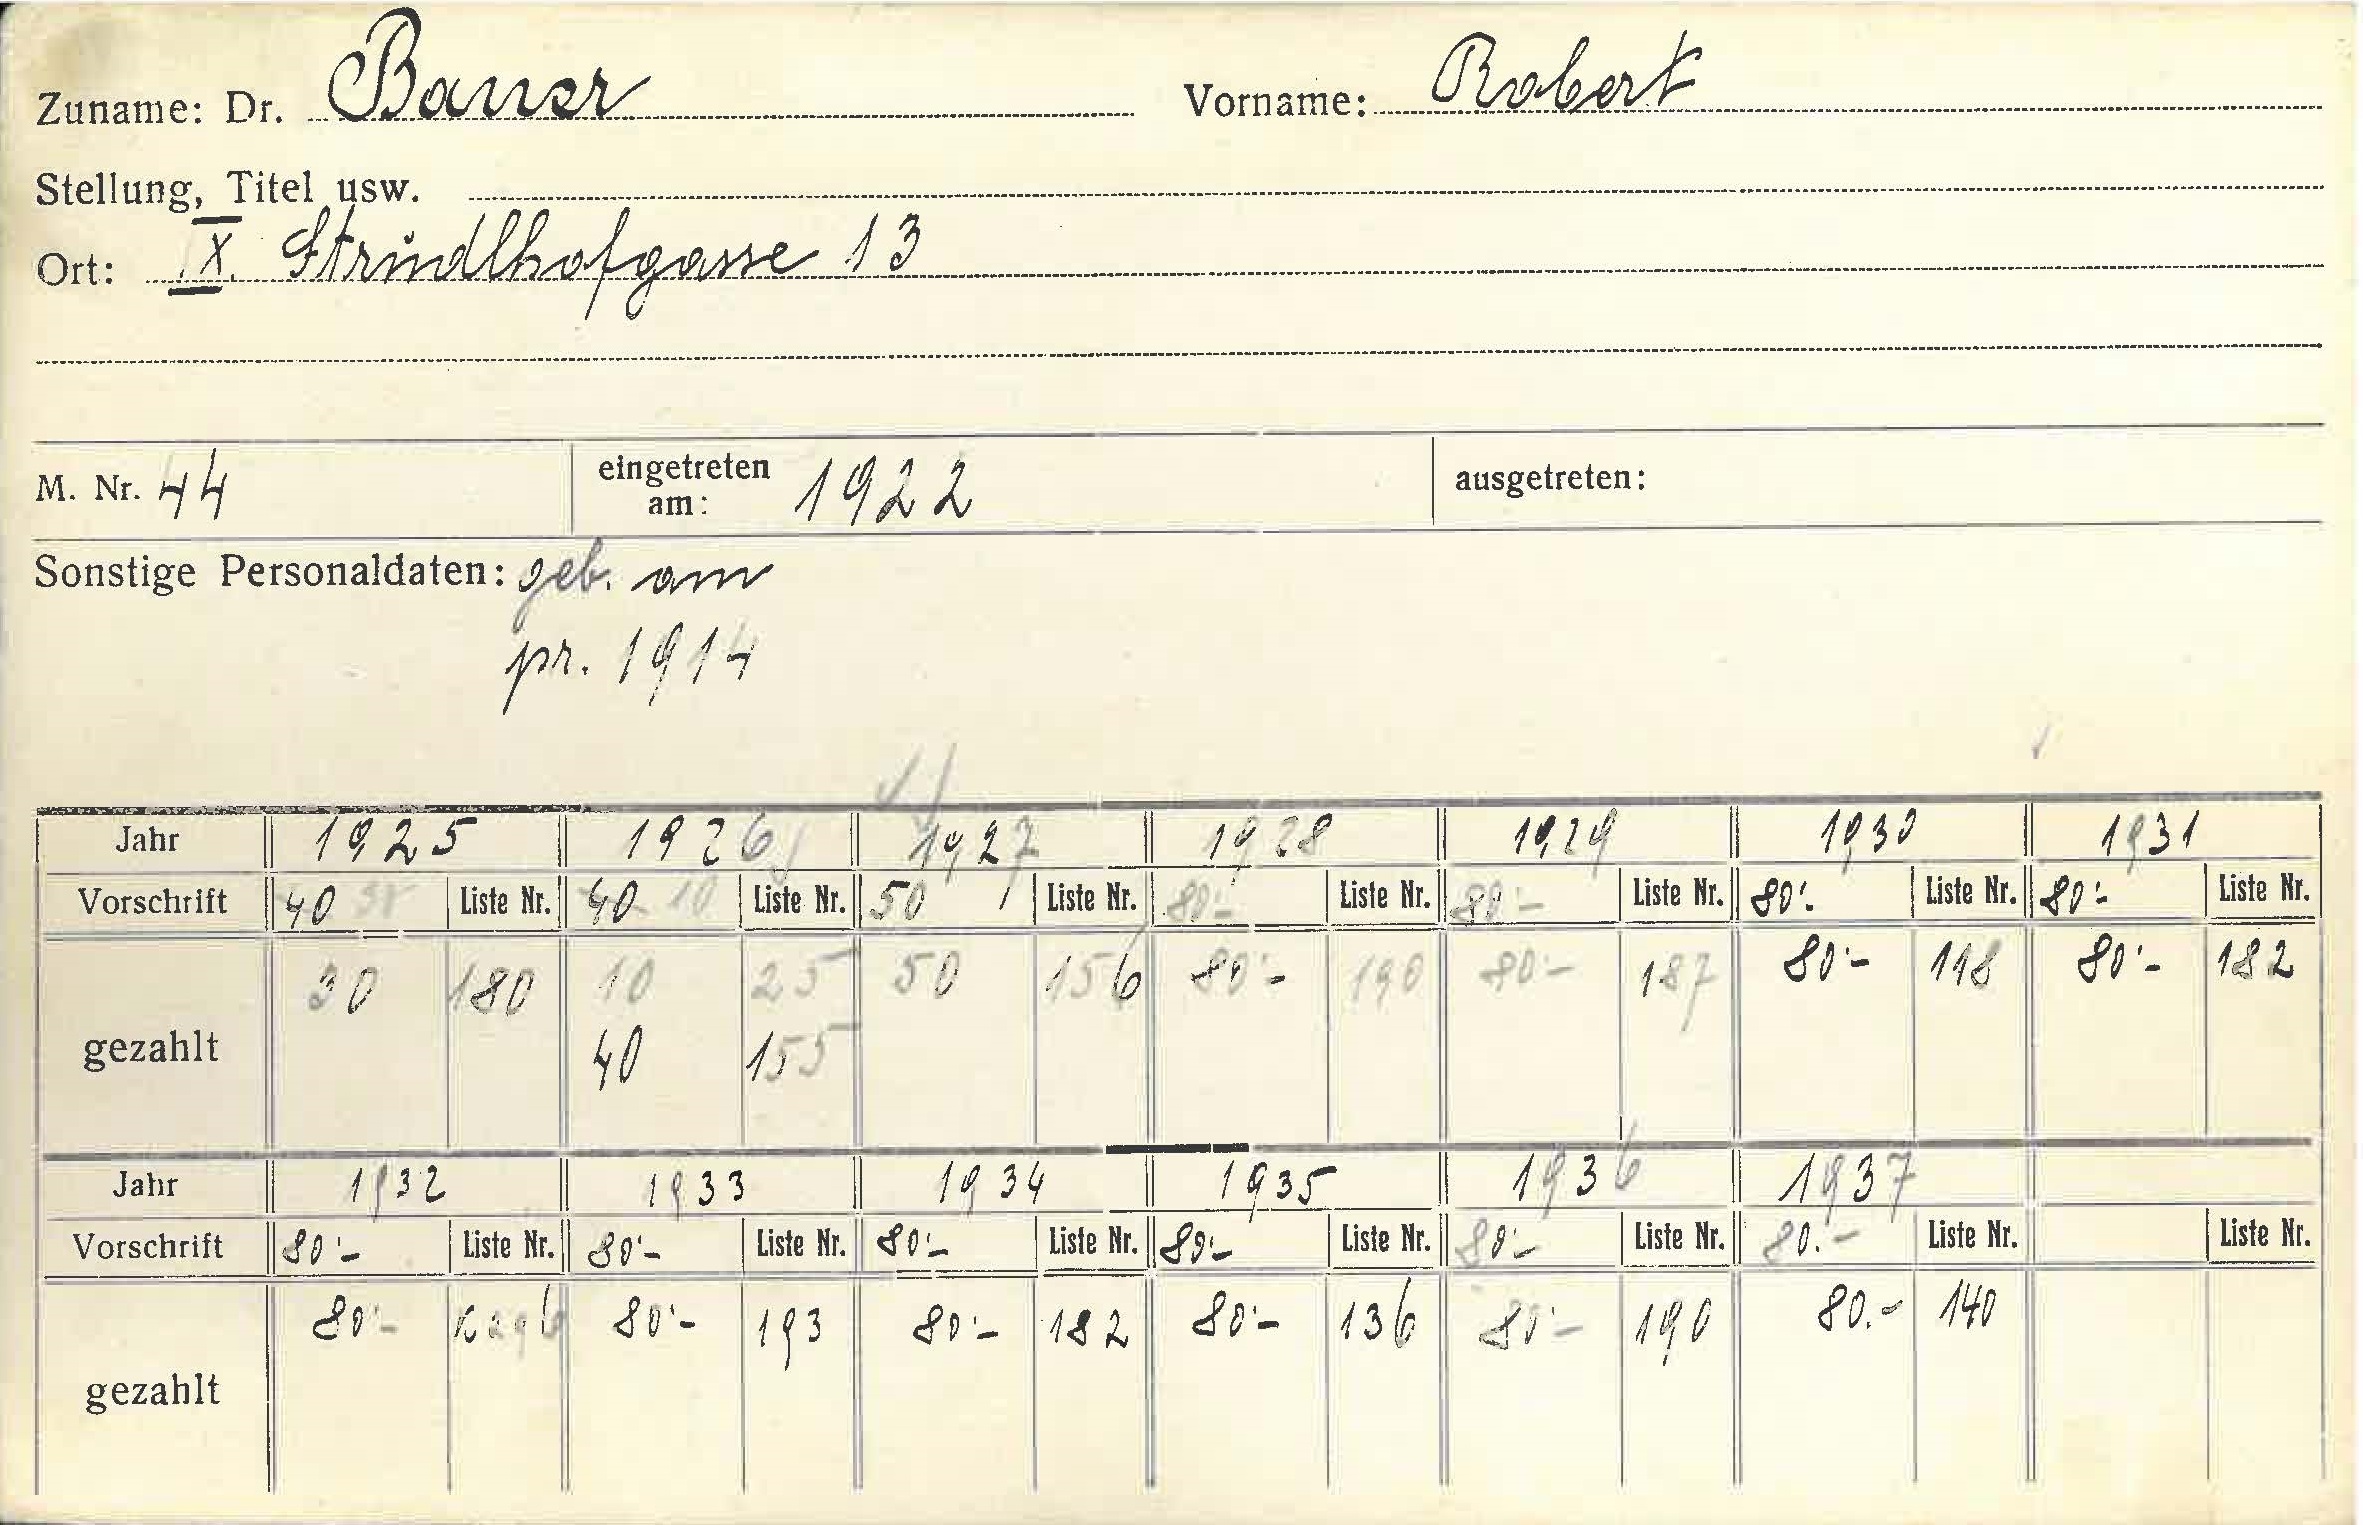 Zuname: Dr. Bauer Vorname: Robert
Stellung, Titel usw.
Ort: IX. Strudlhofgasse 13
M. Nr. 44 eingetreten am: 1922 ausgetreten:
Sonstige Personaldaten: geb. am
pr. 1914
Jahr 1925 1926 1927 1928 1929 1930 1931
Vorschrift 40 Liste Nr. 40 10 Liste Nr. 50 Liste Nr. 80'- Liste Nr. 80'- Liste Nr. 80'- Liste Nr. 80'- Liste Nr.
gezahlt 30 180 10 25 50 156 80'- 190 80'- 187 80'- 118 80'- 182
40 155
Jahr 1932 1933 1934 1935 1936 1937
Vorschrift 80'- Liste Nr. 80'- Liste Nr. 80'- Liste Nr. 80'- Liste Nr. 80'- Liste Nr. 80.- Liste Nr. Liste Nr.
gezahlt 80'- 80'- 193 80'- 182 80'- 136 80'- 190 80.- 140